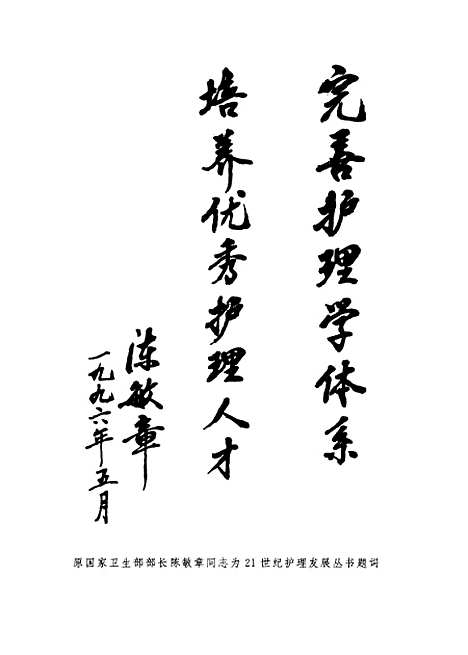 完善护理学体系
培养优秀护理人才
陈敏章
一九九六年五月
原国家卫生部部长陈敏章同志为21世纪护理发展丛书题词